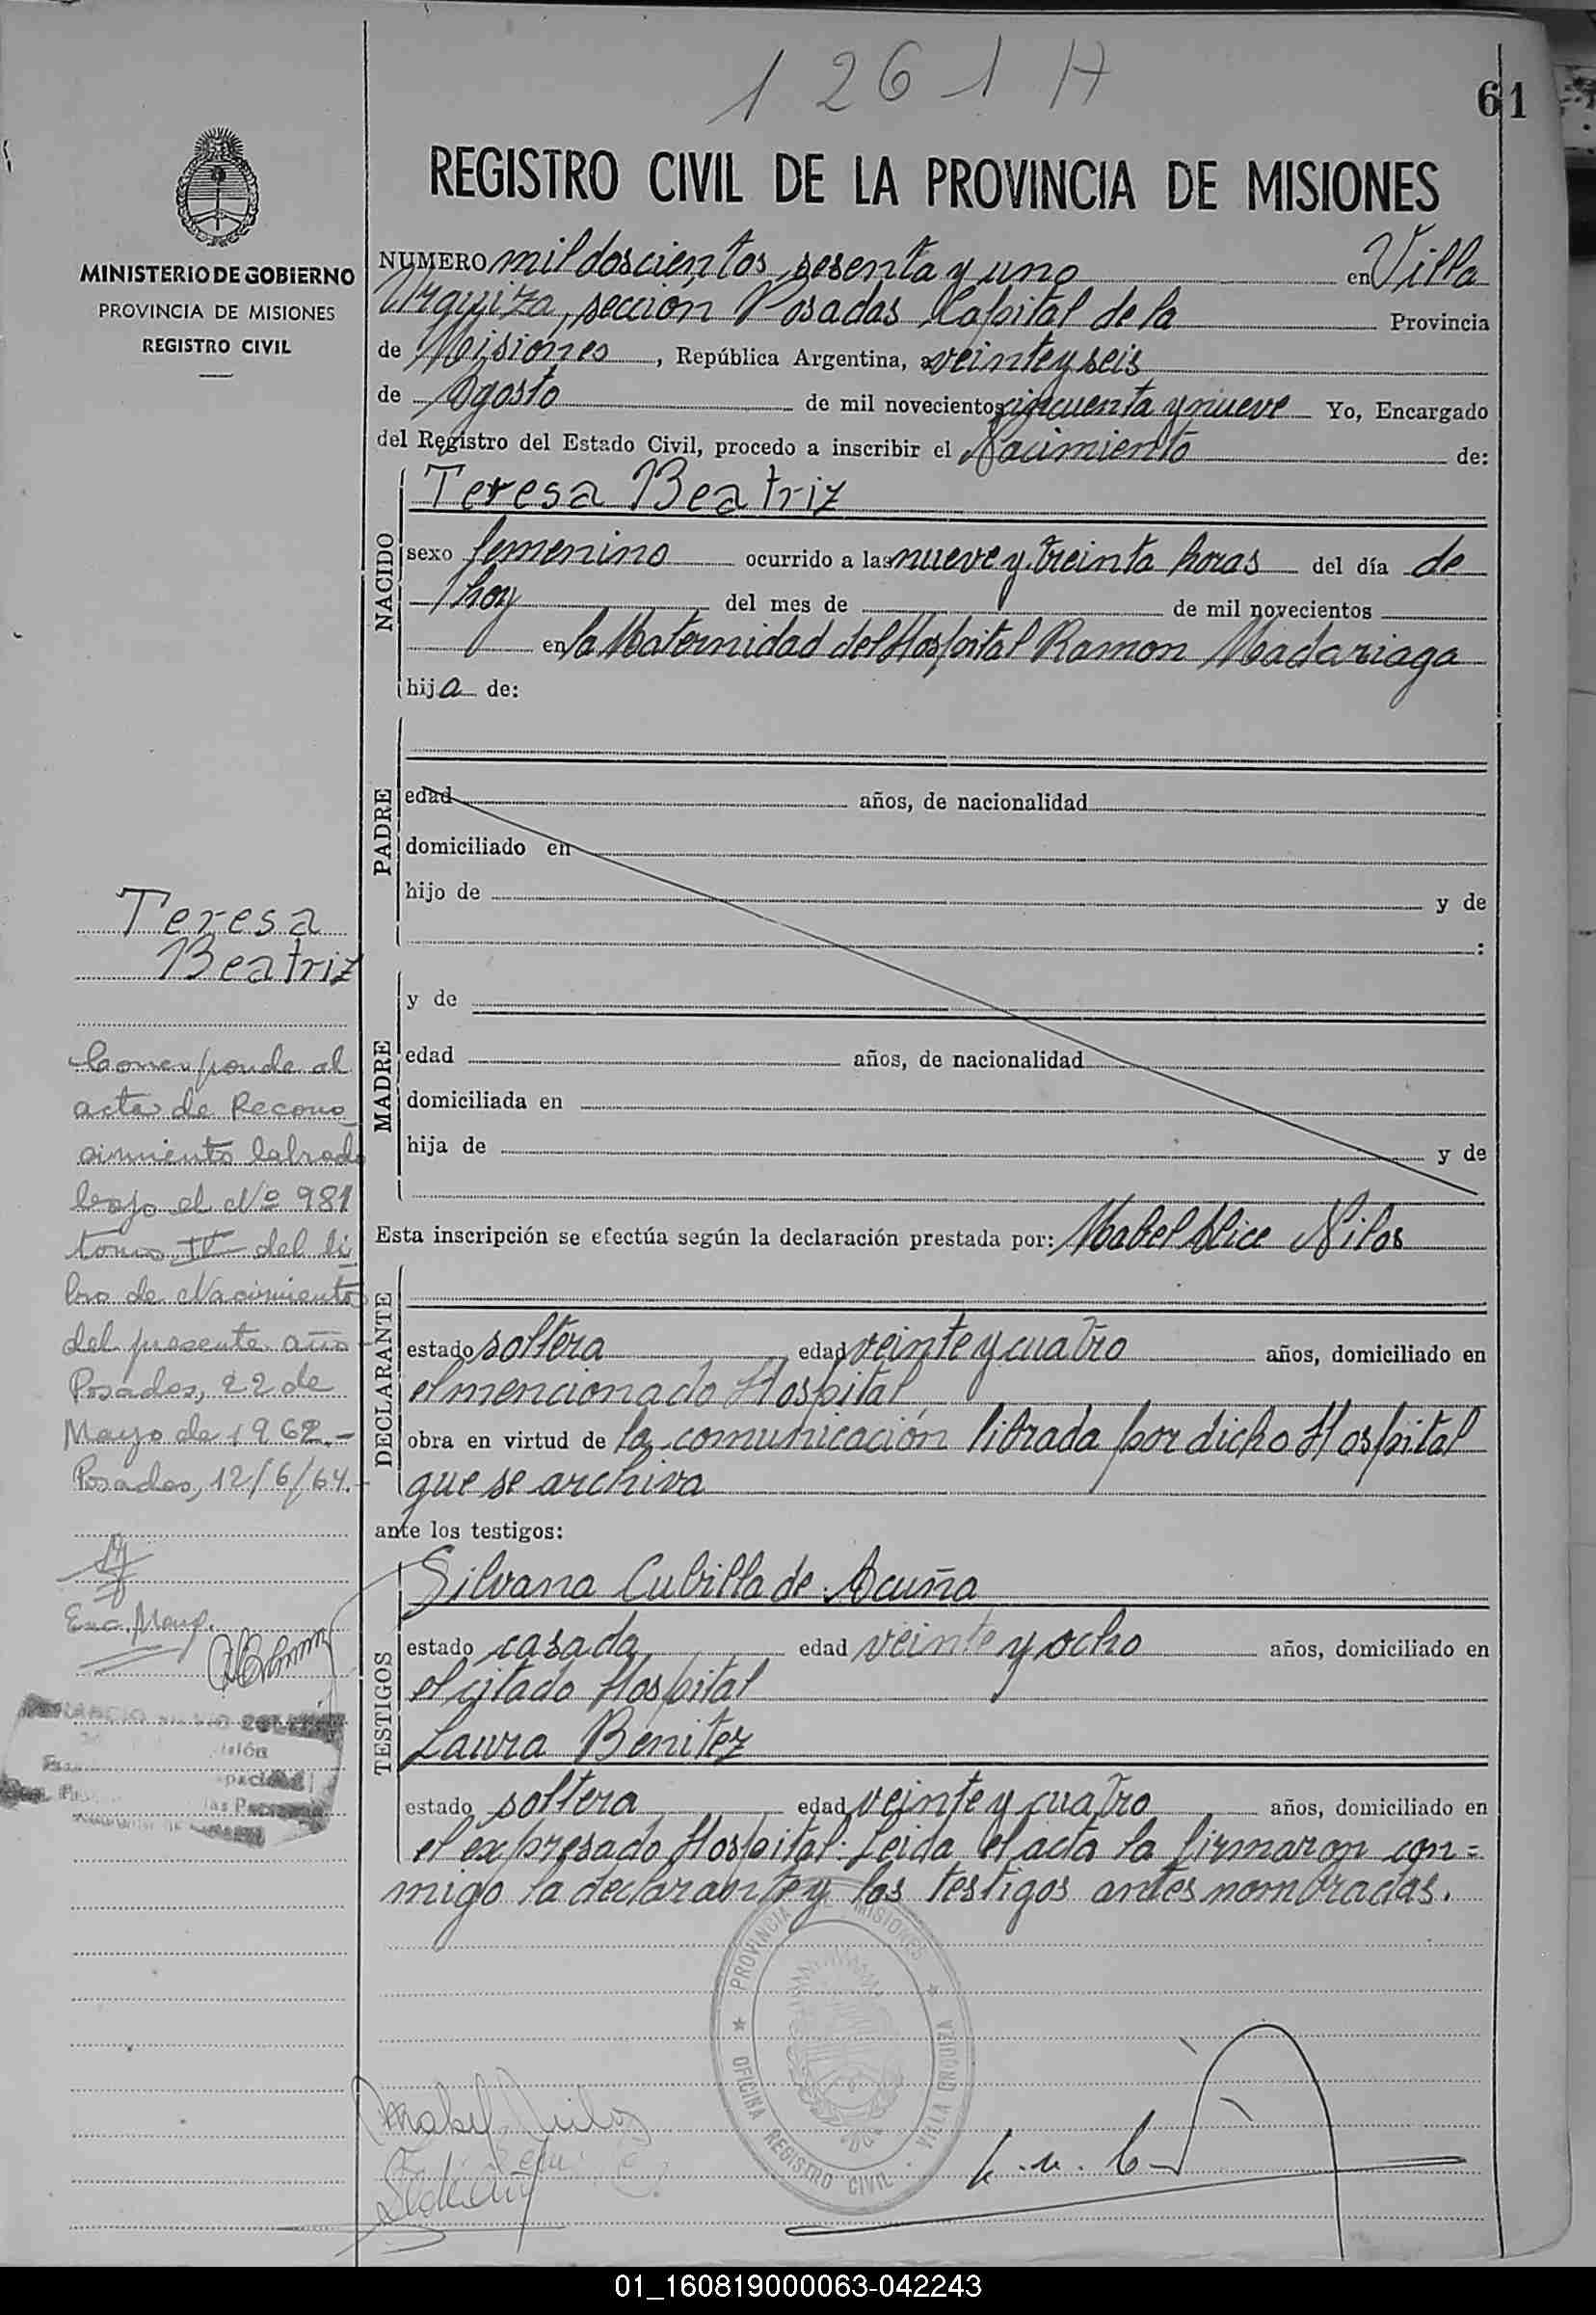 1 2 6 1 H
61
REGISTRO CIVIL DE LA PROVINCIA DE MISIONES
MINISTERIO DE GOBIERNO
PROVINCIA DE MISIONES
REGISTRO CIVIL
NUMERO mil doscientos sesenta y uno en Villa
Urquiza, sección Posadas Capital de la Provincia
de Misiones, República Argentina, a veinte y seis
de Agosto de mil novecientos cincuenta y nueve Yo, Encargado
del Registro del Estado Civil, procedo a inscribir el Nacimiento de:
NACIDO
Teresa Beatriz
sexo femenino ocurrido a las nueve y treinta horas del día de
hoy del mes de de mil novecientos
en la Maternidad del Hospital Ramon Madariaga
hija de:
PADRE
edad años, de nacionalidad
domiciliado en
hijo de y de
:
MADRE
y de
edad años, de nacionalidad
domiciliada en
hija de y de
Esta inscripción se efectúa según la declaración prestada por: Mabel Alice Nilos
DECLARANTE
estado soltera edad veinte y cuatro años, domiciliado en
el mencionado Hospital
obra en virtud de la comunicación librada por dicho Hospital
que se archiva
ante los testigos:
TESTIGOS
Silvana Cubilla de Acuña
estado casada edad veinte y ocho años, domiciliado en
el citado Hospital
Laura Benitez
estado soltera edad veinte y cuatro años, domiciliado en
el expresado Hospital. Leida el acta la firmaron con=
migo la declarante y los testigos antes nombradas.
Teresa
Beatriz
Corresponde al
acta de Recono
cimiento labrado
bajo el Nº 981
tomo IV del li
bro de Nacimiento
del presente año
Posadas, 22 de
Mayo de 1962.-
Posadas, 12/6/64.-
PROVINCIA DE MISIONES
OFICINA REGISTRO CIVIL - VILLA URQUIZA
01_160819000063-042243